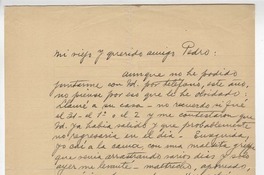 Mi viejo y querido amigo Pedro:
Aunque no he podido
juntarme con Ud. por teléfono, este año,
no piense por eso que le he olvidado.
Llamé a su casa - no recuerdo si fué
el 31 - el 1º o el 2 y me contestaron que
Ud. ya había salido y que probablemente
no regresaría en el día. Enseguida,
yo caí a la cama con una maldita gripe
que venía arrastrando varios días y sólo
ayer me levanté - maltrecho, aporreado,